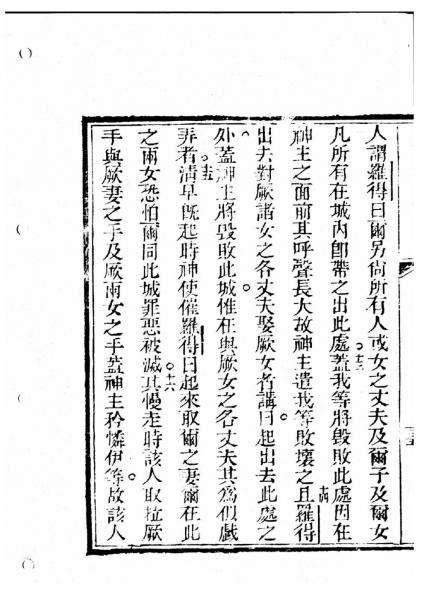 人謂羅得曰爾另尚所有人或女之丈夫及爾子及爾女
凡所有在城內卽帶之出此處蓋我等將毀敗此處因在
神主之面前其呼聲長大故神主遣我等敗壞之且羅得
出去對厥諸女之各丈夫娶厥女者講曰起出去此處之
外蓋神主將毀敗此城惟在與厥女之各丈夫其為似戲
弄者清早旣起時神使催羅得曰起來取爾之妻爾在此
之兩女恐怕爾同此城罪惡被滅其慢走時該人取拉厥
手與厥妻之手及厥兩女之手蓋神主矜憐伊等故該人
十三
十四
十五
十六